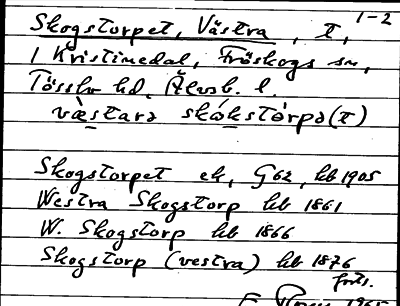 1-2
Skogstorpet, Västra, t,
1 Kristinedal, Fröskogs sn,
Tössbo hd, Älvsb. l.
væ̀stara skókstòrpə(t)
Skogstorpet ek, G62, kb 1905
Westra Skogstorp kb 1861
W. Skogstorp kb 1866
Skogstorp (vestra) kb 1876
forts.
1965